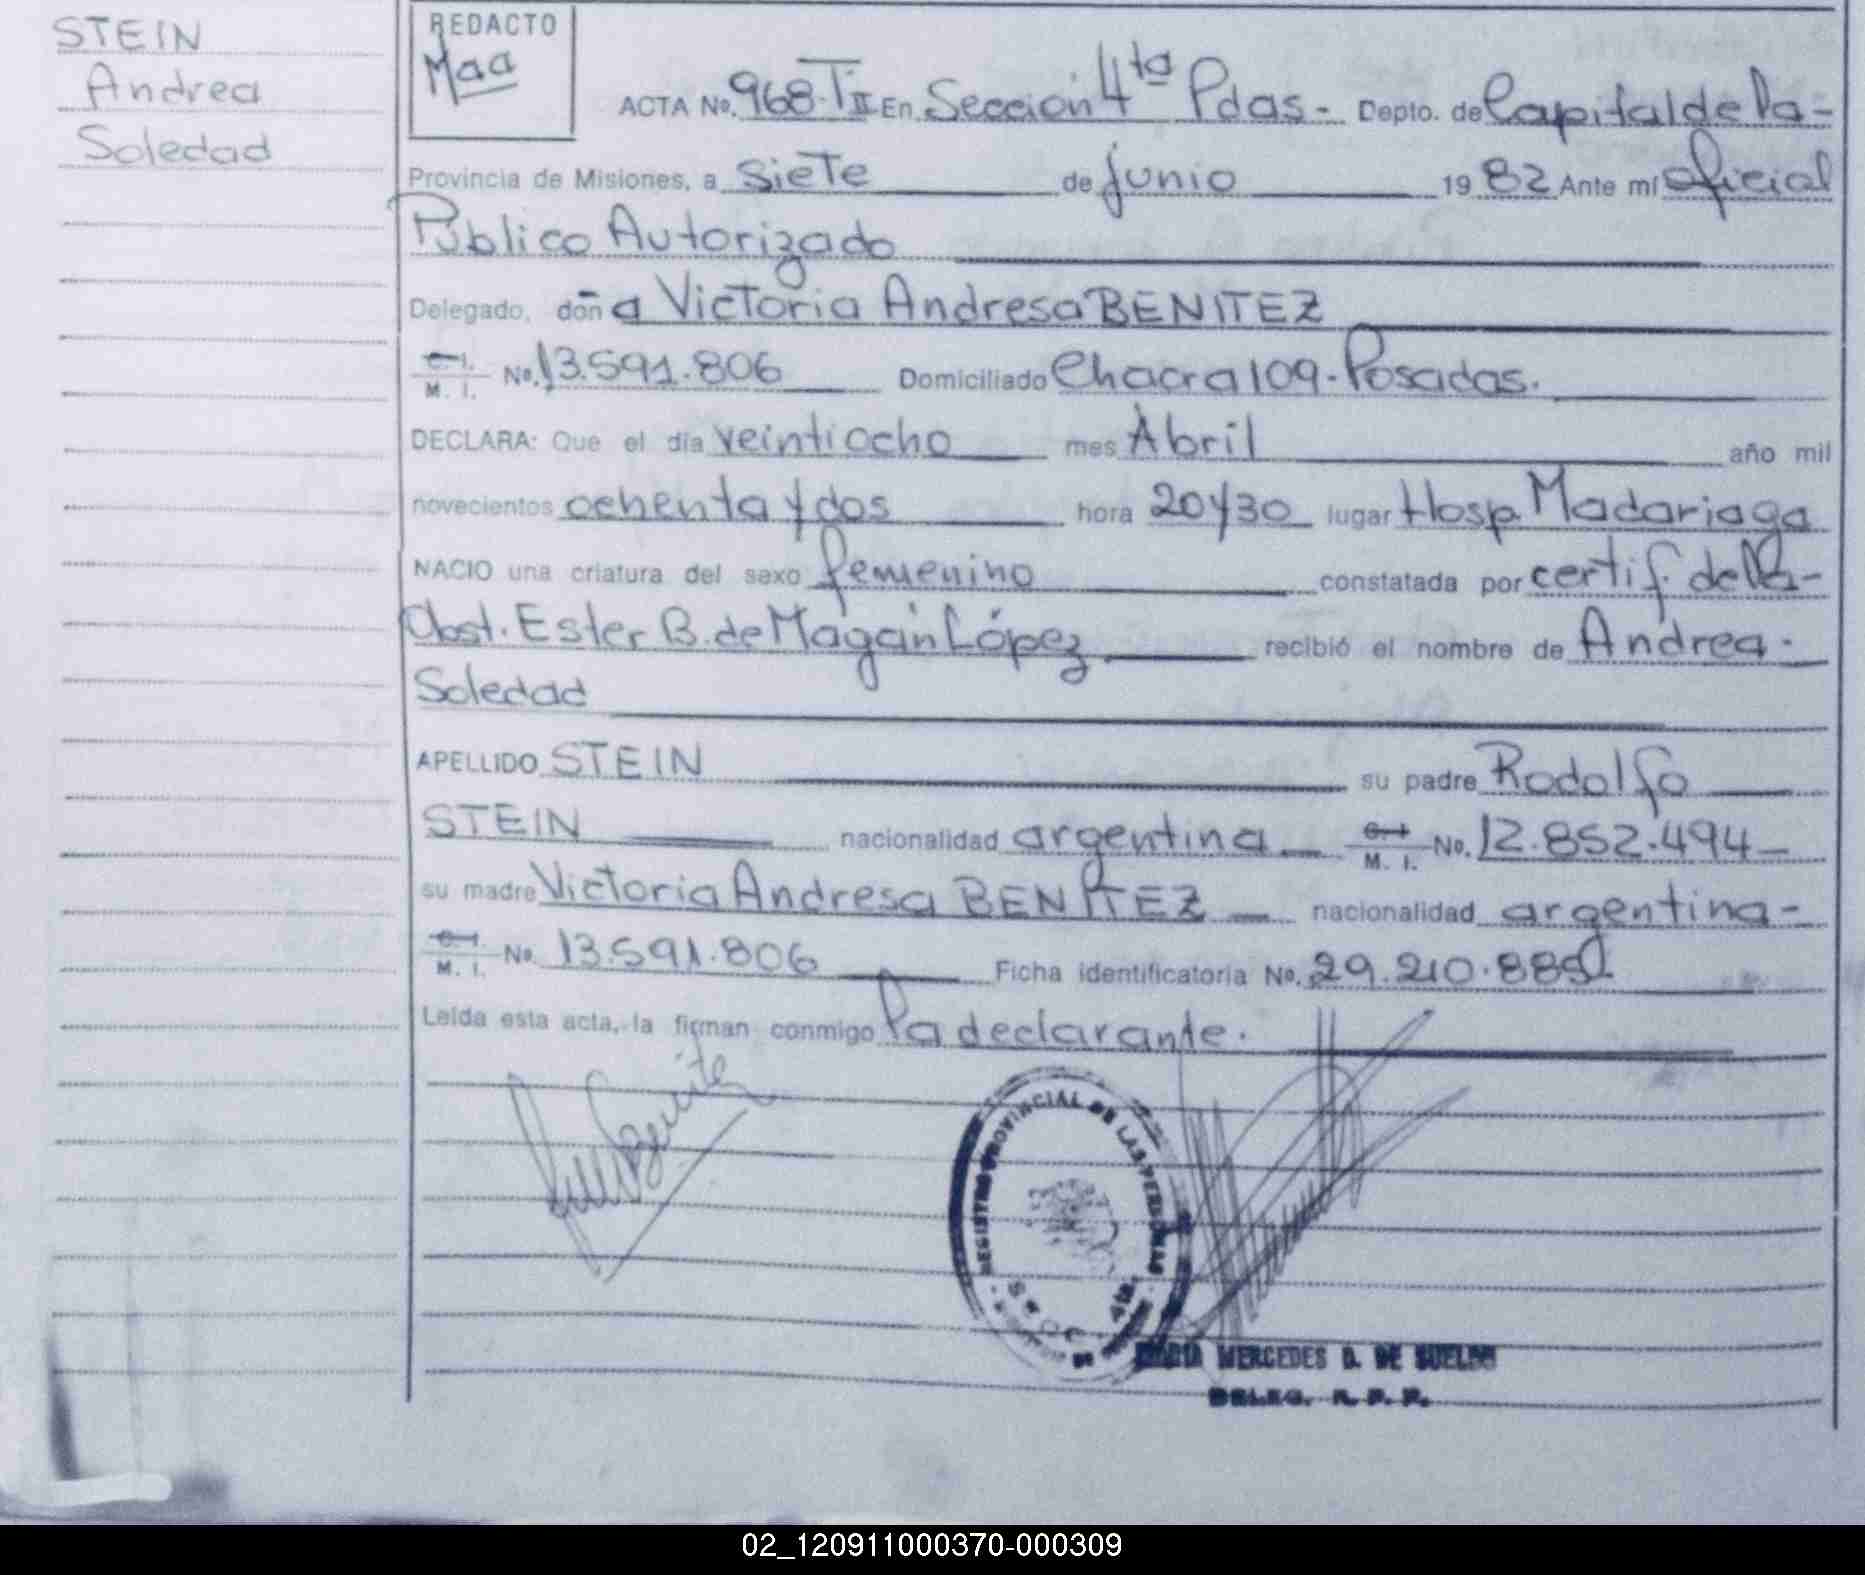 STEIN
Andrea
Soledad
REDACTO
Maa
ACTA No. 968-TII En Sección 4ta Pdas- Depto. de Capital de la-
Provincia de Misiones, a siete de junio 1982 Ante mí oficial
Público Autorizado
Delegado, doña Victoria Andresa BENITEZ
C. I. M. I. No. 13.591.806 Domiciliado Chacra 109-Posadas.
DECLARA: Que el día veintiocho mes Abril año mil
novecientos ochenta y dos hora 20y30 lugar Hosp. Madariaga
NACIO una criatura del sexo femenino constatada por certif. de la-
Obst. Ester B. de Magán López recibió el nombre de Andrea-
Soledad
APELLIDO STEIN su padre Rodolfo
STEIN nacionalidad argentina C. I. M. I. No. 12.852.494-
su madre Victoria Andresa BENITEZ nacionalidad argentina-
C. I. M. I. No. 13.591.806 Ficha identificatoria No. 29.210.885
Leída esta acta, la firman conmigo la declarante.
REGISTRO PROVINCIAL DE LAS PERSONAS
4ta.
MERCEDES D. DE SUELDO
DELEG. R. P. P.
02_120911000370-000309